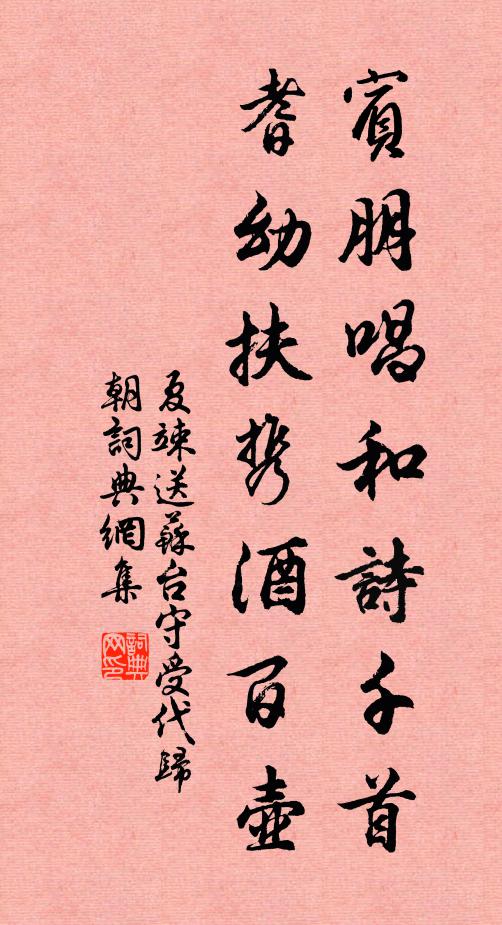 賓朋唱和詩千首
耆幼扶携酒百壺
夏竦送蘇台守受代歸
朝詞典網集
詞典网印